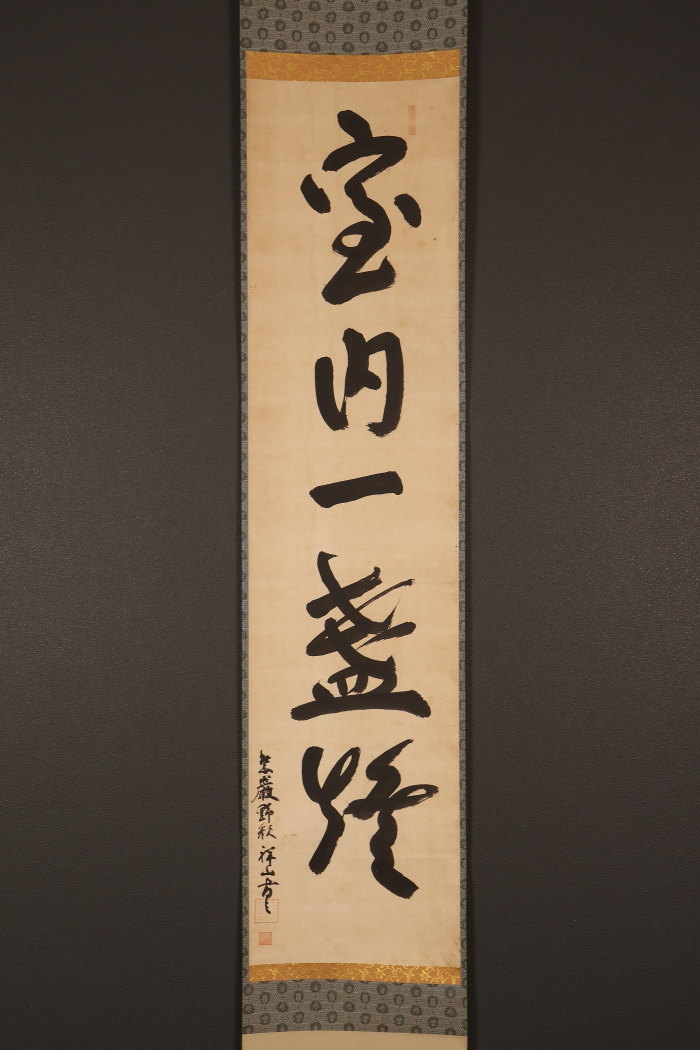 室内一盞燈
紫巖野衲 祥山書